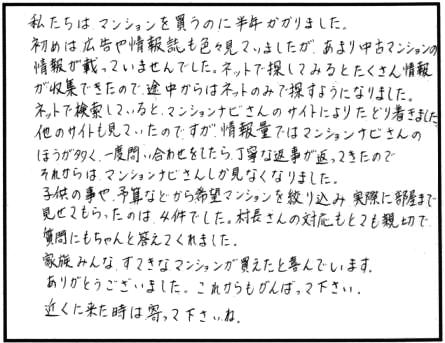 私たちはマンションを買うのに半年かかりました。
初めは広告や情報誌も色々見ていましたが、あまり中古マンションの
情報が載っていませんでした。ネットで探してみるとたくさん情報
が収集できたので、途中からはネットのみで探すようになりました。
ネットで検索していると、マンションナビさんのサイトによりたどり着きました。
他のサイトも見ていたのですが、情報量ではマンションナビさんの
ほうが多く、一度問い合わせをしたら、丁寧な返事が返ってきたので
それからは、マンションナビさんしか見なくなりました。
子供の事や、予算などから希望マンションを絞り込み、実際に部屋まで
見せてもらったのは、4件でした。村長さんの対応もとても親切で、
質問にもちゃんと答えてくれました。
家族みんな、すてきなマンションが買えたと喜んでいます。
ありがとうございました。これからもがんばって下さい。
近くに来た時は寄って下さいね。